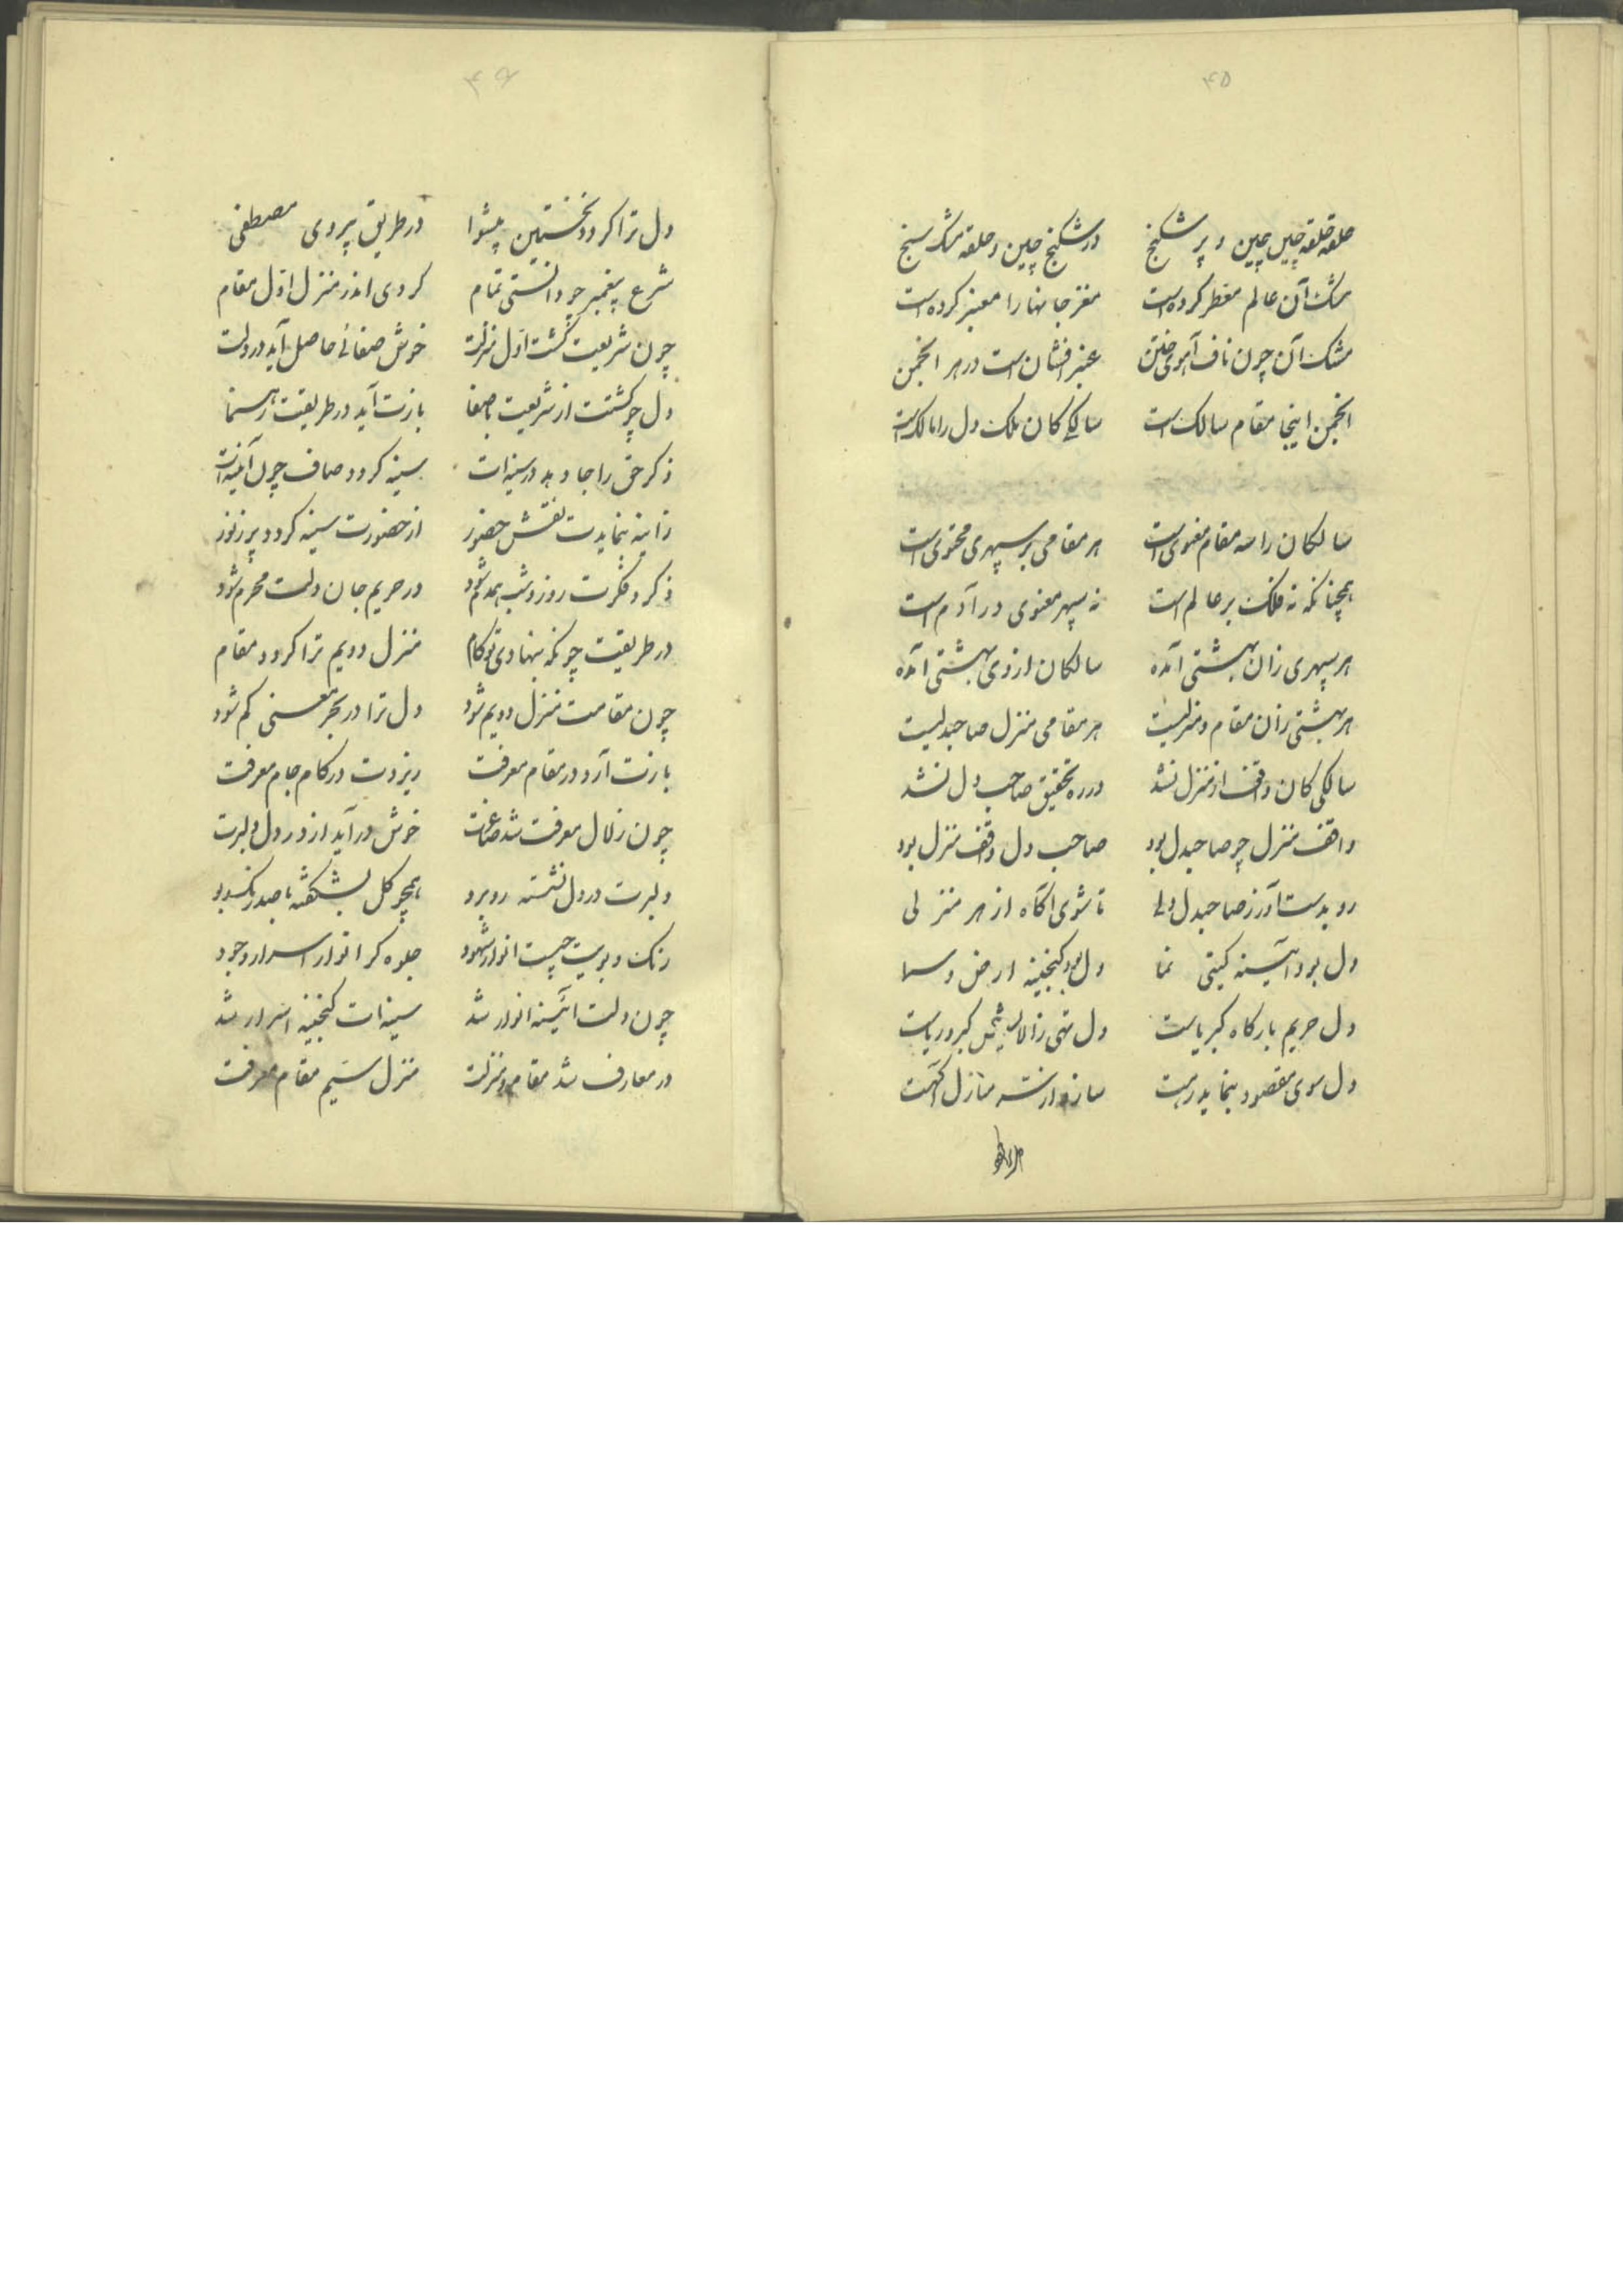 ۴۵
حلقه حلقه چین چین و پر شکنج در شکنج چین و حلقه مشک سنج
مشک آن عالم معطر کرده است مغز جانها را معنبر کرده است
مشک آن چون ناف آهوی ختن عنبر افشان است در هر انجمن
انجمن اینجا مقام سالک است سالکی کان ملک دل را مالک است
سالکان را سه مقام معنوی است هر مقامی بر سپهری محتوی است
همچنانکه نه فلک بر عالم است نه سپهر معنوی در آدم است
هر سپهری زان بهشتی آمده سالکان از وی بهشتی آمده
هر بهشتی زان مقام و منزلیست هر مقامی منزل صاحبدلیست
سالکی کان واقف از منزل نشد در ره تحقیق صاحب دل نشد
واقف منزل چو صاحبدل بود صاحب دل واقف منزل بود
رو بدست آور ز صاحبدل دلی تا شوی آگاه از هر منزلی
دل بود آئینه گیتی نما دل بود گنجینه ارض و سما
دل حریم بارگاه کبریاست دل تهی ز الایش کبر و ریاست
دل سوی مقصود بنماید رهت سازد از سه منازل آگهت
۴۶
دل ترا گردد نخستین پیشوا در طریق پیروی مصطفی
شرع پیغمبر چو دانستی تمام کردی اندر منزل اول مقام
چون شریعت گشت اول منزلت خوش صفائی حاصل آید در دلت
دل چو گشتت از شریعت باصفا بازت آید در طریقت رهنما
ذکر حق را جا دهد در سینه‌ات سینه گردد صاف چون آئینه‌ات
زاینه بنمایدت نقش حضور از حضورت سینه گردد پر ز نور
ذکر و فکرت روز و شب همدم شود در حریم جان دلت محرم شود
در طریقت چونکه بنهادی تو گام منزل دویم ترا گردد مقام
چون مقامت منزل دویم شود دل ترا در بحر معنی گم شود
بازت آرد در مقام معرفت ریزدت در کام جام معرفت
چون زلال معرفت شد خوش درآید از در دل دلبرت
دلبرت در دل نشسته روبرو همچو گل بشکفته با صد رنگ و بو
رنگ و بویت چیست انوار شهود جلوه گر انوار اسرار وجود
چون دلت آئینه انوار شد سینه‌ات گنجینه اسرار شد
در معارف شد مقام و منزلت منزل سیم مقام معرفت